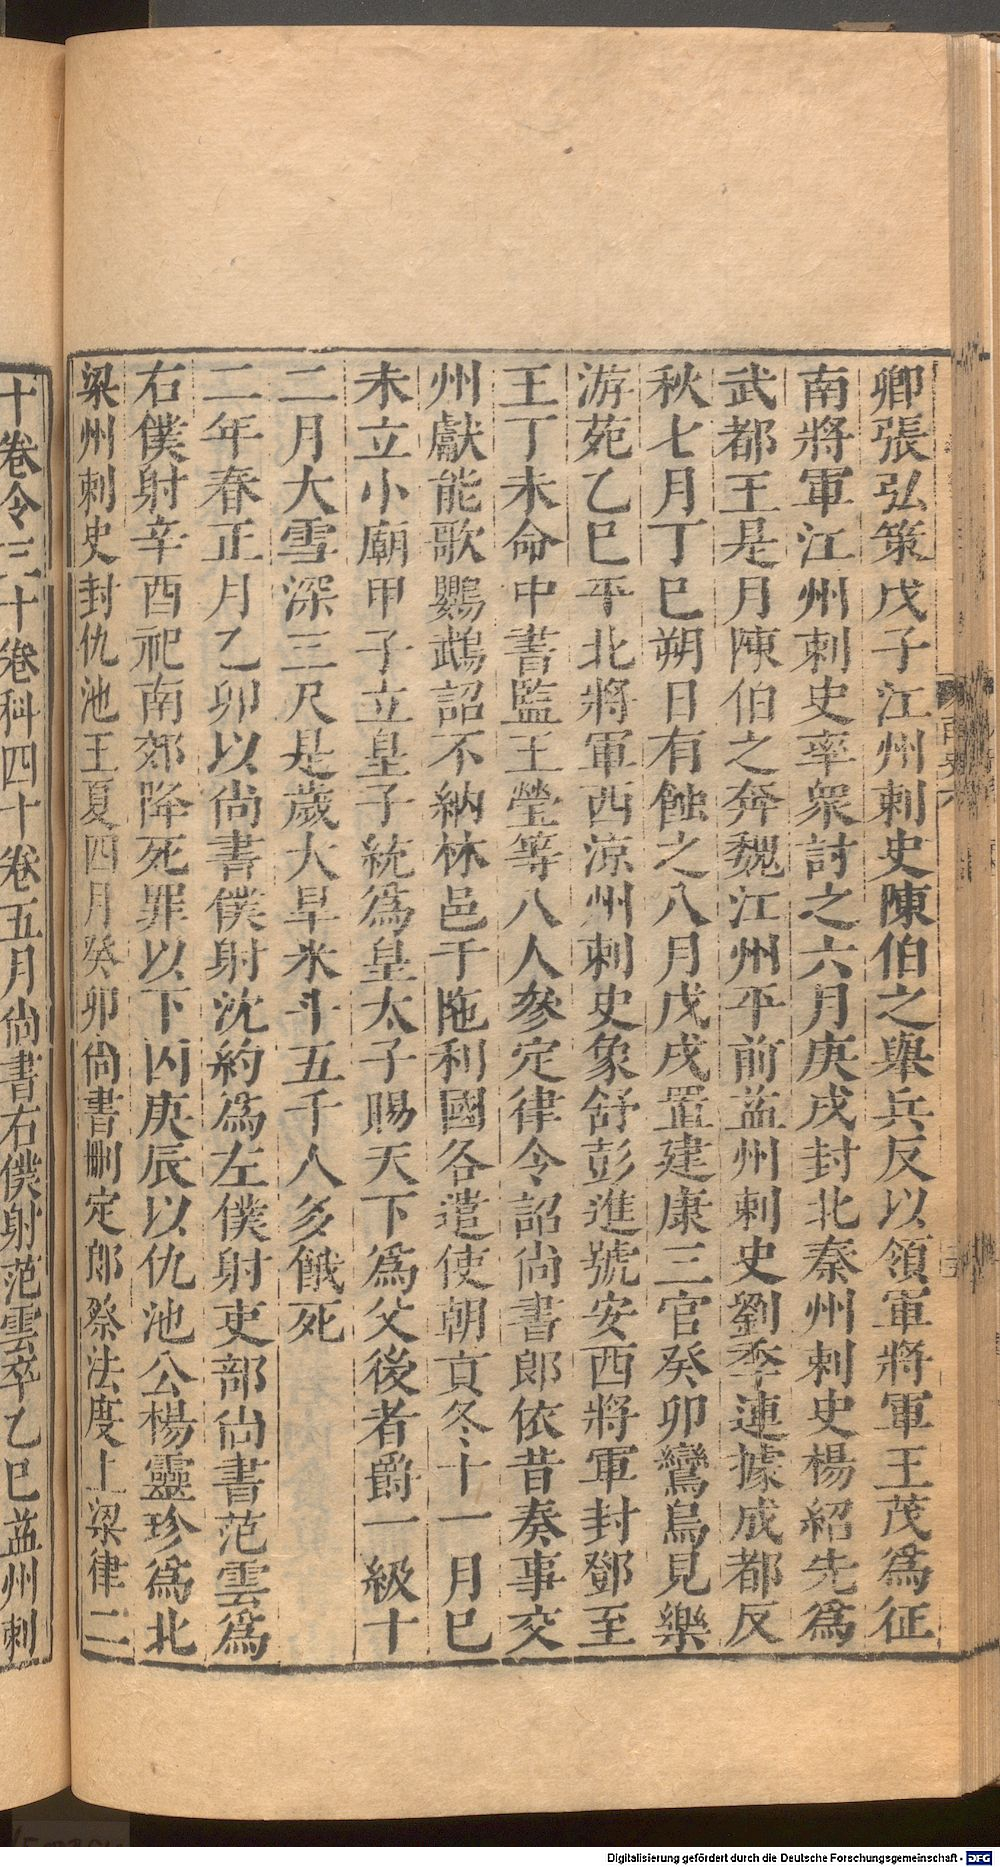 卿張弘策戊子江州刺史陳伯之舉兵反以領軍將軍王茂爲征
南將軍江州刺史率衆討之六月庚戌封北秦州刺史楊紹先爲
武都王是月陳伯之奔魏江州平前益州刺史劉季連據成都反
秋七月丁巳朔日有蝕之八月戊戌置建康三官癸卯鸞鳥見樂
游苑乙巳平北將軍西涼州刺史象舒彭進號安西將軍封鄧至
王丁未命中書監王瑩等八人參定律令詔尚書郎依昔奏事交
州獻能歌鸚鵡詔不納林邑干陁利國各遣使朝貢冬十一月已
未立小廟甲子立皇子統爲皇太子賜天下爲父後者爵一級十
二月大雪深三尺是歲大旱米斗五千人多餓死
二年春正月乙卯以尚書僕射沈約爲左僕射吏部尚書范雲爲
右僕射辛酉祀南郊降死罪以下囚庚辰以仇池公楊靈珍爲北
梁州刺史封仇池王夏四月癸卯尚書刪定郎祭法度上梁律二
十卷令三十卷科四十卷五月尚書右僕射范雲卒乙巳益州刺
Digitalisierung gefördert durch die Deutsche Forschungsgemeinschaft - DFG